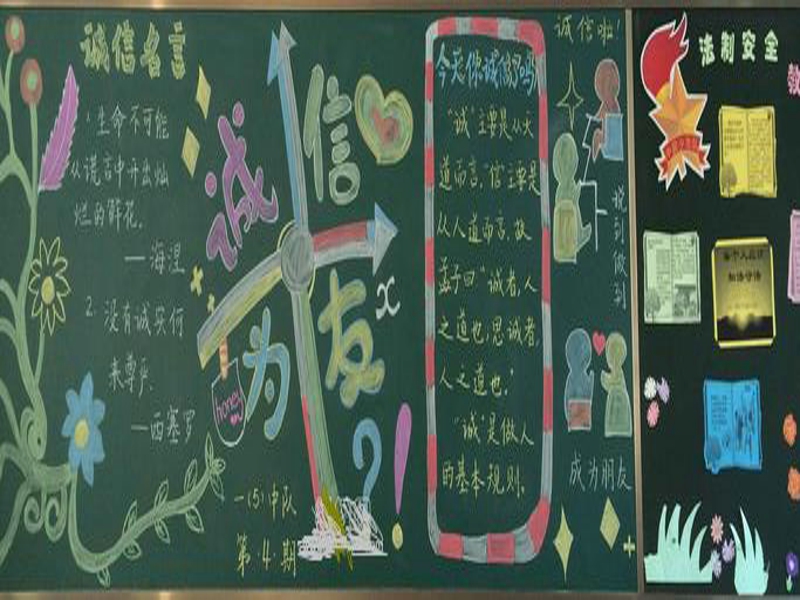 诚信名言
1.生命不可能
从谎言中开出灿
烂的鲜花。
——海涅
2.没有诚实何
来尊严。
——西塞罗
诚
信
为
友
x
?!
honey
一(5)中队
第·4·期
今天你诚信了吗
“诚”主要是从天
道而言,“信”主要是
从人道而言。故
孟子曰“诚者,人
之道也,思诚者,
人之道也。”
“诚”是做人
的基本规则。
诚信啦!
说到做到
成为朋友
法制安全
教
每个人应该
知法守法